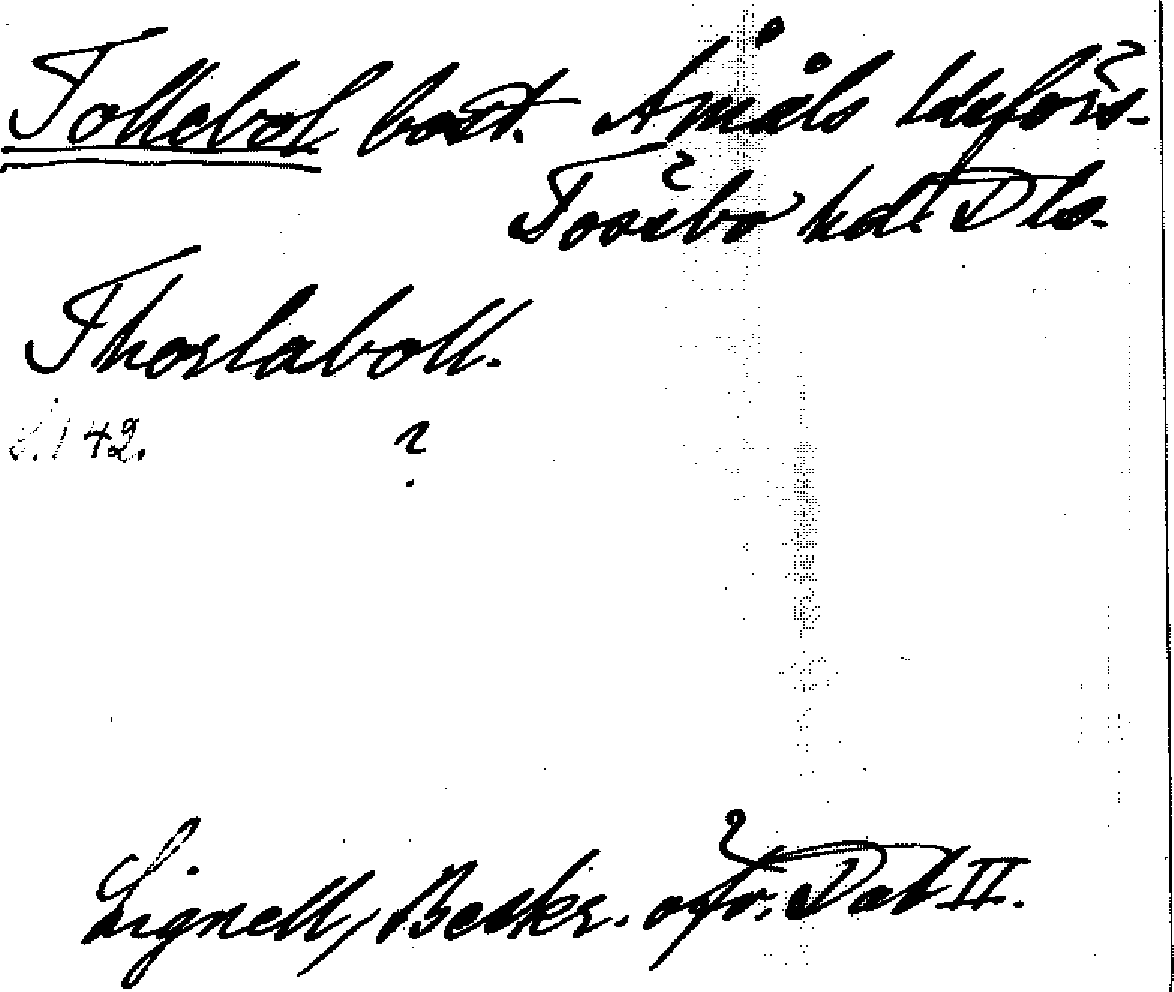 Tollebol bost. Åmåls ldsförs.
Tössbo hd. Dls.
Thorlaboll.
S. 142. ?
Lignell, Beskr. öfv. Dal II.